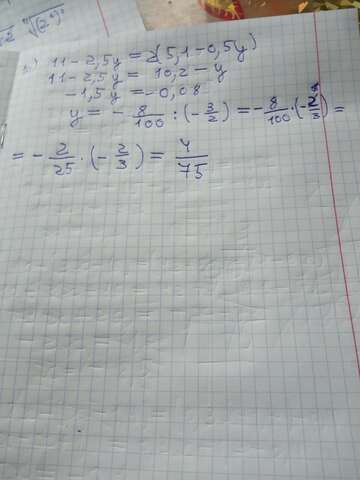 √(2⁶)³
1) 11-2,5y=2(5,1-0,5y)
11-2,5y=10,2-y
-1,5y=-0,08
y=-8/100:(-3/2)=-8/100·(-2/3)=
=-2/25·(-2/3)=4/75